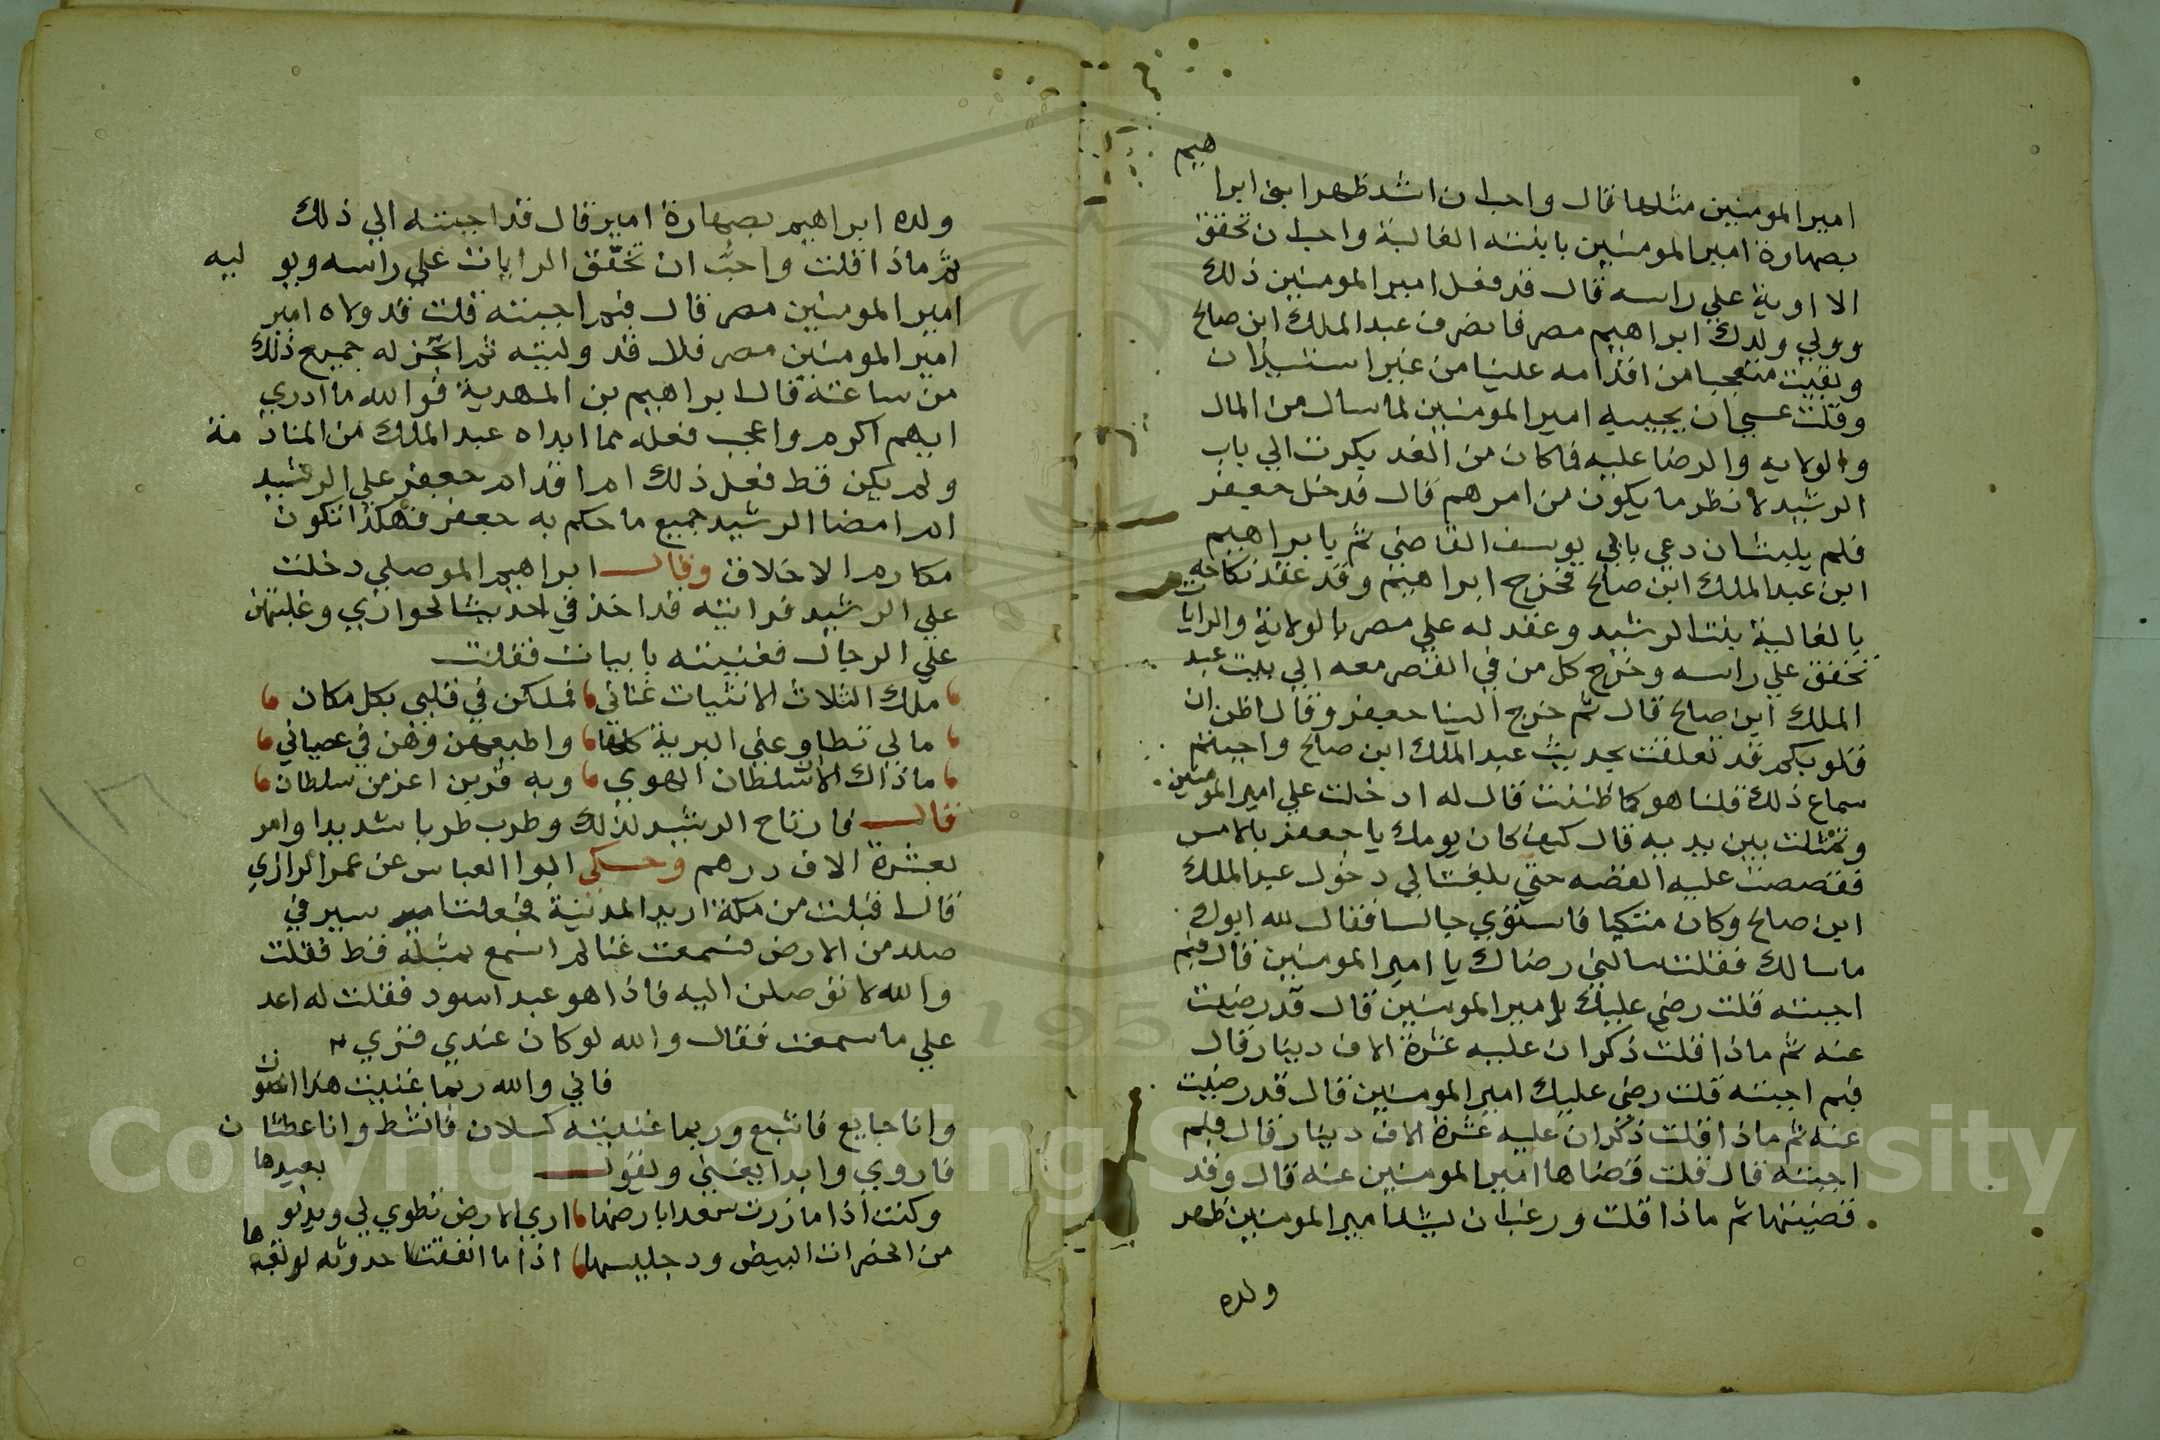 امير المومنين مثلها قال واحب ان اشد ظهر ابني ابراهيم
بصهارة امير المومنين بابنته الغالية واحب ان تخفق
الا اوية علي راسه قال قد فعل امير المومنين ذلك
وولي ولدك ابراهيم مصر فانصرف عبد الملك ابن صالح
وبقيت متعجبا من اقدامه علينا من غير استيذان
وقلت عسي ان يجيبه امير المومنين لما سال من المال
والولايه والرضا عليه فلما كان من الغد بكرت الي باب
الرشيد لانظر ما يكون من امرهم قال فدخل جعفر
فلم يلبث ان دعي بابي يوسف القاضي ثم يابراهيم
ابن عبد الملك ابن صالح فخرج ابراهيم وقد عقد نكاحه
بالغالية بنت الرشيد وعقد له علي مصر بالولاية والرايات
تخفق علي راسه وخرج كل من في القصر معه الي بيت عبد
الملك ابن صالح قال ثم خرج الينا جعفر وقال اظن ان
قلوبكم قد تعلقت بحديث عبد الملك ابن صالح واحببتم
سماع ذلك قلنا هو كما ظننت قال له ادخلت علي امير المومنين
وتمثلت بين يديه قال كيف كان يومك يا جعفر بالامس
فقصصت عليه القصه حتي بلغت الي دخول عبد الملك
ابن صالح وكان متكيا فاستوي جالسا فقال لله ابوك
ما سالك فقلت سالني رضاك يا امير المومنين قال فبم
اجبته قلت رضي عليك يا مير المومنين قال قد رضيت
عنه ثم ماذا قلت ذكر ان عليه عشرة الاف دينار قال
فبم اجبته قلت رضي عليك امير المومنين قال قد رضيت
عنه ثم ماذا قلت ذكر ان عليه عشرة الاف دينار قال فبم
اجبته قال قلت قضاها امير المومنين عنه قال وقد
قضيتها ثم ماذا قلت ورغب ان يشد امير المومنين ظهر
ولده
ولده ابراهيم بصهارة امير قال قد اجبته الي ذلك
ثم ماذا قلت واحب ان تخفق الرايات علي راسه ويوليه
امير المومنين مصر قال فبم اجبته قلت قد ولاه امير
امير المومنين مصر قال قد وليته ثم انجز له جميع ذلك
من ساعته قال ابراهيم بن المهدية فوالله ما ادري
ايهم اكرم واعجب فعله مما ابداه عبد الملك من المنادمة
ولم يكن قط فعل ذلك ام اقدام جعفر علي الرشيد
ام امضا الرشيد جميع ما حكم به جعفر فهكذا تكون
مكارم الاخلاق وقال ابراهيم الموصلي دخلت
علي الرشيد فرايته قد اخذ في احديث الجواري وغلبتهن
علي الرجال فغنيته بابيات فقلت
ملك الثلاث الانثيات عناني فملكن في قلبي بكل مكان
مالي تطاوعني البرية كلها واطيعهن وهن في عصياني
ماذاك الا سلطان الهوي وبه قوين اعز من سلطان
قال فارتاح الرشيد لذلك وطرب طربا شديدا وامر
بعشرة الاف درهم وحكي ابوا العباس عن عمر الرازي
قال اقبلت من مكة اريد المدينة فجعلت اسير في
صلد من الارض فسمعت غنا لم اسمع بمثله قط فقلت
والله لا توصلن اليه فاذا هو عبد اسود فقلت له اعد
علي ما سمعت فقال والله لو كان عندي قري
فاني والله ربما غنيت هذا الصوت
وانا جايع فاشبع وربما غنيته كسلان فانشط وانا عطشان
فاروي وابدا يغني ويقول
وكنت اذا ما زرت سعدا بارضها اري الارض تطوي لي ويدنو بعيدها
من الخفرات البيض ود جليسها اذا ما انقضت احدوثه لو تعيدها